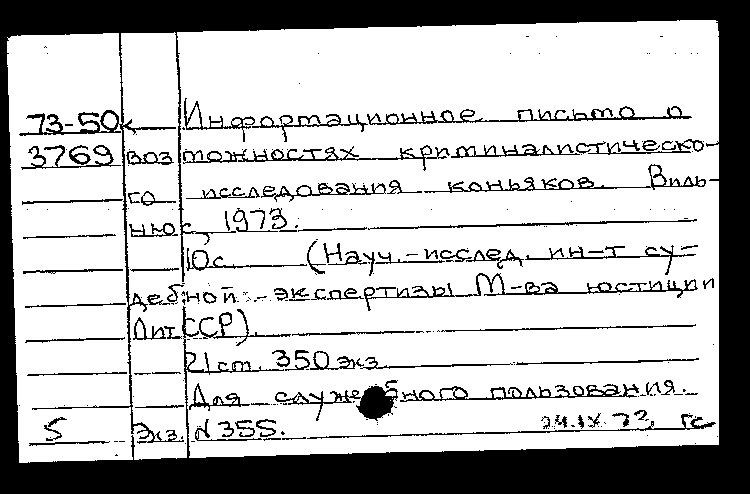 73-50к Информационное письмо о
3769 возможностях криминалистическо-
го исследования коньяков. Виль-
нюс, 1973.
10с. (Науч.-исслед. ин-т су-
дебной экспертизы М-ва юстиции
Лит.ССР).
21 ст. 350 экз.
Для служебного пользования.
5 Экз. N 355. 24.IX.73, гс